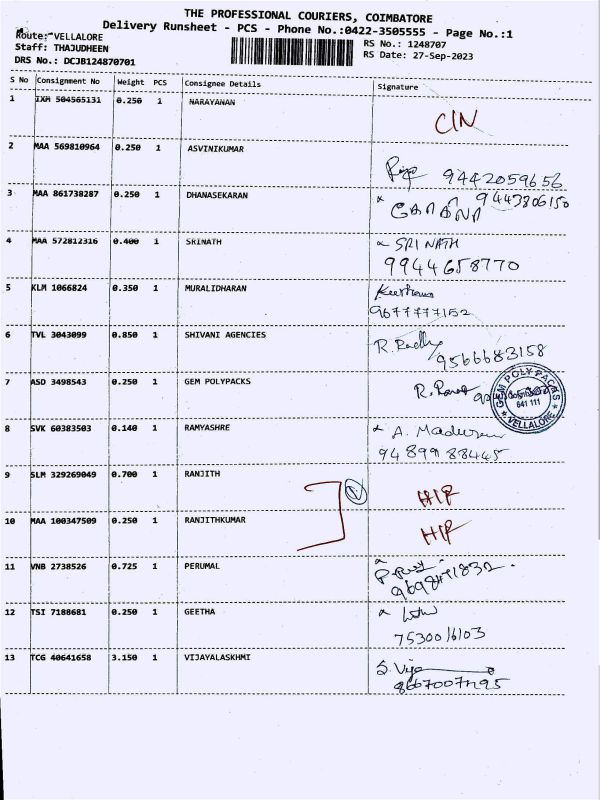 THE PROFESSIONAL COURIERS, COIMBATORE
Delivery Runsheet - PCS - Phone No.:0422-3505555 - Page No.:1
Route: VELLALORE
RS No.: 1248707
Staff: THAJUDHEEN
RS Date: 27-Sep-2023
DRS No.: DCJB124870701
S No Consignment No Weight PCS Consignee Details Signature
1 IXM 504565131 0.250 1 NARAYANAN
CIN
2 MAA 569810964 0.250 1 ASVINIKUMAR
9442059656
3 MAA 861738287 0.250 1 DHANASEKARAN
9443806150
4 MAA 572812316 0.400 1 SRINATH
SRINATH
9944658770
5 KLM 1066824 0.350 1 MURALIDHARAN
9677777152
6 TVL 3043099 0.850 1 SHIVANI AGENCIES
R.
9566683158
7 ASD 3498543 0.250 1 GEM POLYPACKS
R.
GEM POLY PACKS
641 111
VELLALORE
8 SVK 60383503 0.140 1 RAMYASHRE
A.
9489988445
9 SLM 329269049 0.700 1 RANJITH
10 MAA 100347509 0.250 1 RANJITHKUMAR
11 VNB 2738526 0.725 1 PERUMAL
12 TSI 7188681 0.250 1 GEETHA
7530016103
13 TCG 40641658 3.150 1 VIJAYALASKHMI
S. Vija